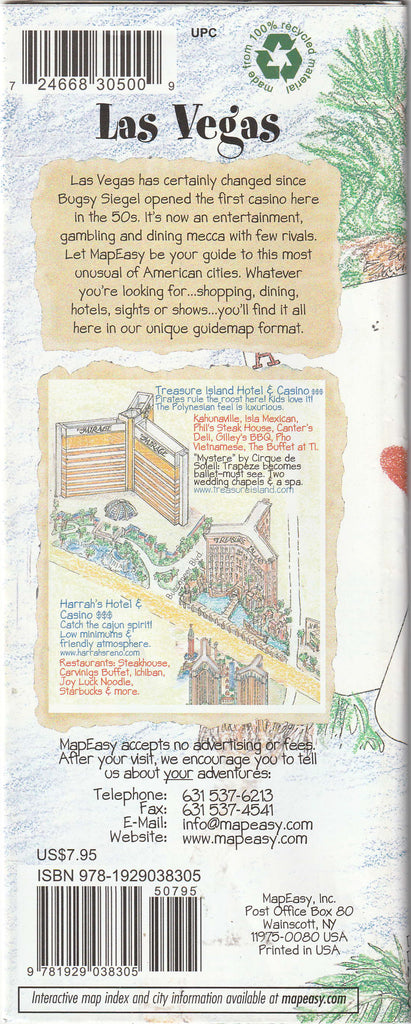 UPC
made from 100% recycled material
7 24668 30500 9
Las Vegas
Las Vegas has certainly changed since
Bugsy Siegel opened the first casino here
in the 50s. It's now an entertainment,
gambling and dining mecca with few rivals.
Let MapEasy be your guide to this most
unusual of American cities. Whatever
you're looking for...shopping, dining,
hotels, sights or shows...you'll find it all
here in our unique guidemap format.
Treasure Island Hotel & Casino $$$
Pirates rule the roost here! Kids love it!
The Polynesian feel is luxurious.
Kahunaville, Isla Mexican,
Phil's Steak House, Canter's
Deli, Gilley's BBQ, Pho
Vietnamese, The Buffet at TI.
"Mystere" by Cirque de
Soleil: Trapeze becomes
ballet-must see. Two
wedding chapels & a spa.
www.treasureisland.com
MIRAGE
MIRAGE
TREASURE ISLAND
Harrah's Hotel &
Casino $$$
Catch the cajun spirit!
Low minimums &
friendly atmosphere.
www.harrahsreno.com
Restaurants: Steakhouse,
Carvings Buffet, Ichiban,
Joy Luck Noodle,
Starbucks & more.
MapEasy accepts no advertising or fees.
After your visit, we encourage you to tell
us about your adventures:
Telephone: 631 537-6213
Fax: 631 537-4541
E-Mail: info@mapeasy.com
Website: www.mapeasy.com
US$7.95
ISBN 978-1929038305
50795
9 781929 038305
MapEasy, Inc.
Post Office Box 80
Wainscott, NY
11975-0080 USA
Printed in USA
Interactive map index and city information available at mapeasy.com